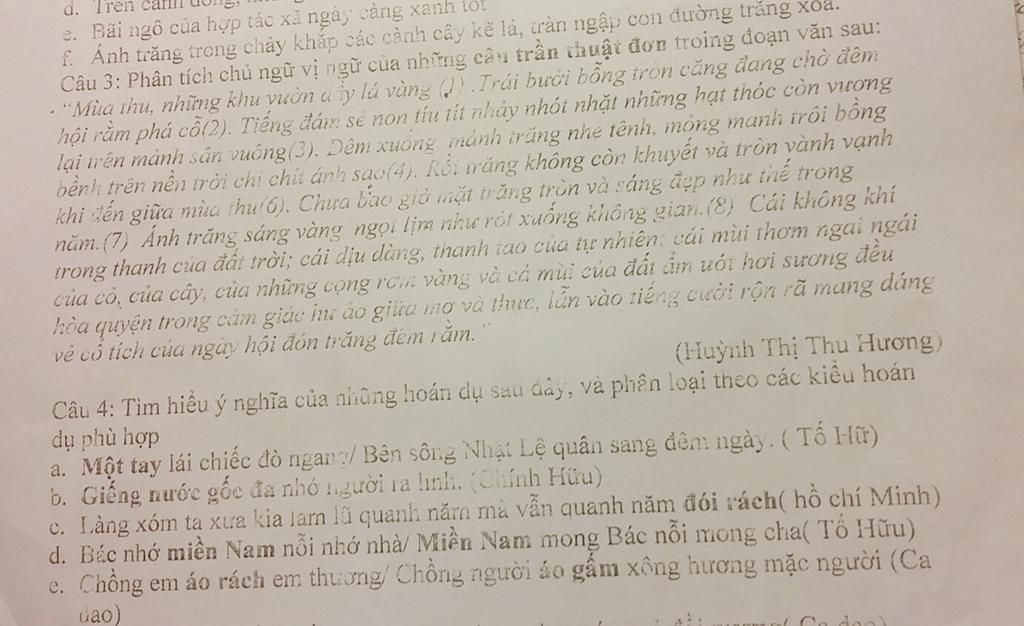 d. Trên cánh đồng,
e. Bãi ngô của hợp tác xã ngày càng xanh tốt
f. Ánh trăng trong chảy khắp các cành cây kẽ lá, tràn ngập con đường trắng xoá.
Câu 3: Phân tích chủ ngữ vị ngữ của những câu trần thuật đơn troing đoạn văn sau:
"Mùa thu, những khu vườn đầy lá vàng (1) .Trái bưởi bỗng tròn căng đang chờ đêm
hội rằm phá cỗ(2). Tiếng đám sẻ non tíu tít nhảy nhót nhặt những hạt thóc còn vương
lại trên mảnh sân vuông(3). Đêm xuống, mảnh trăng nhẹ tênh, mỏng manh trôi bồng
bềnh trên nền trời chi chít ánh sao(4). Rồi trăng không còn khuyết và tròn vành vạnh
khi đến giữa mùa thu(6). Chưa bao giờ mặt trăng tròn và sáng đẹp như thế trong
năm.(7) Ánh trăng sáng vàng ngọt lịm như rót xuống không gian.(8) Cái không khí
trong thanh của đất trời; cái dịu dàng, thanh tao của tự nhiên; cái mùi thơm ngai ngái
của cỏ, của cây, của những cọng rơm vàng và cả mùi của đất ẩm ướt hơi sương đều
hòa quyện trong cảm giác hư ảo giữa mơ và thực, lẫn vào tiếng cười rộn rã mang dáng
vẻ cổ tích của ngày hội đón trăng đêm rằm."
(Huỳnh Thị Thu Hương)
Câu 4: Tìm hiểu ý nghĩa của những hoán dụ sau đây, và phân loại theo các kiểu hoán
dụ phù hợp
a. Một tay lái chiếc đò ngang/ Bên sông Nhật Lệ quân sang đêm ngày. ( Tố Hữ)
b. Giếng nước gốc đa nhớ người ra lính. (Chính Hữu)
c. Làng xóm ta xưa kia lam lũ quanh năm mà vẫn quanh năm đói rách( hồ chí Minh)
d. Bác nhớ miền Nam nỗi nhớ nhà/ Miền Nam mong Bác nỗi mong cha( Tố Hữu)
e. Chồng em áo rách em thương/ Chồng người áo gấm xông hương mặc người (Ca
dao)